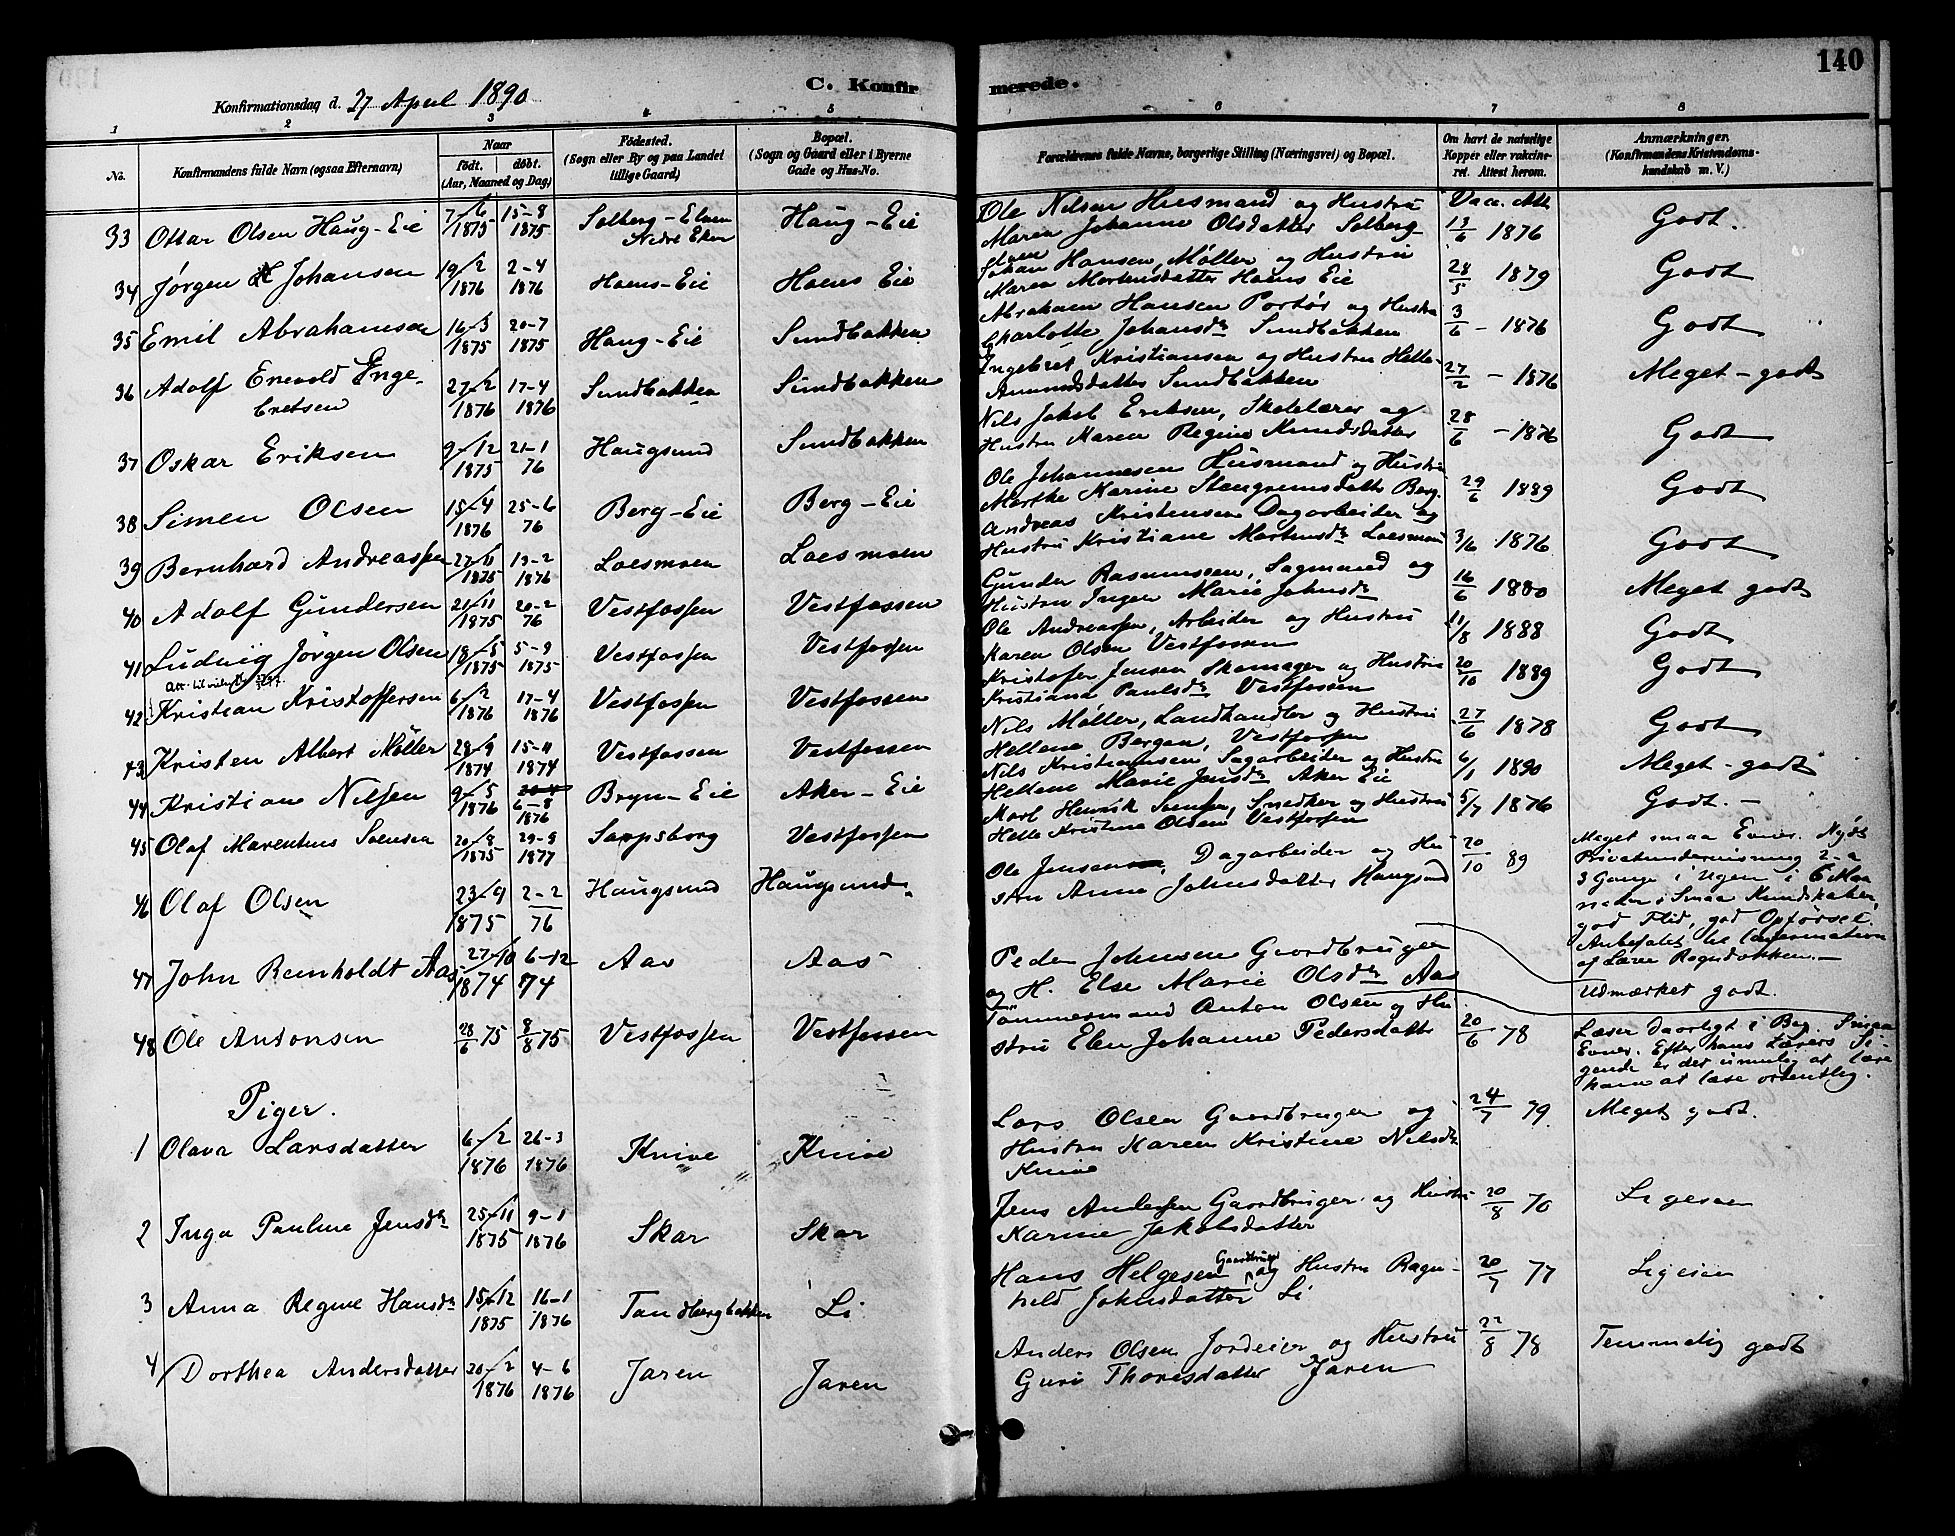 140
C. Konfirmerede.
Konfirmationsdag d. 27 April 1890
1 2 3 4 5 6 7 8
No. Konfirmandens fulde Navn (ogsaa Efternavn) Naar født. døbt. (Aar, Maaned og Dag) Fødested. (Sogn eller By og paa Landet tillige Gaard) Bopæl. (Sogn og Gaard eller i Byerne Gade og Hus-No. Forældrenes fulde Navne, borgerlige Stilling (Næringsvei) og Bopæl. Om havt de naturlige Kopper eller vakcineret. Attest herom. Anmærkninger. (Konfirmandens Kristendomskundskab m. V.)
33 Ottar Olsen Haug-Eie 7-6/1875 15-8 1875 Solberg-Elven Nedre Eker Haug-Eie Ole Nilsen Husmand og Hustru Maren Johanne Olsdatter Solbergelven Vacc. Att. 13/6 1876 Godt.
34 Jørgen H Johansen 19/2 1876 2-4 1876 Hoens-Eie Hoens Eie Johan Hansen, Møller og Hustru Maren Mortensdatter Hoens Eie 28/5 1879 Godt
35 Emil Abrahamsen 16-3 1875 20-7 1875 Haug-Eie Sundbakken Abraham Hansen Portør og Hustru Charlotte Johansdr Sundbakken 3/6 - 1876 Godt
36 Adolf Enevold Engebretsen 27-2 1876 17-4 1876 Sundbakken Sundbakken Ingebret Kristiansen og Hustru Helle Amundsdatter Sundbakken 27/2 - 1876 Meget-godt
37 Oskar Eriksen 9-12 1875 21-1 76 Haugsund Sundbakken Nils Jakob Eriksen, Skolelærer og Hustru Maren Regine Knudsdatter 28/6 - 1876 Godt
38 Simen Olsen 15-4 1876 25-6 76 Berg-Eie Berg-Eie Ole Johannesen Husmand og Hustru Marthe Karine Stengrimsdatter Berg. 29/6 1889 Godt
39 Bernhard Andreassen 27-11 1875 13-2 1876 Loesmoen Loesmoen Andreas Kristensen Dagarbeider og Hustru Kristiane Martensdr Loesmoen 3/6 1876 Godt
40 Adolf Gundersen 21/11 1875 20-2 76 Vestfossen Vestfossen Gunder Rasmussen, Sagmand og Hustru Inger Marie Johnsdr 16/6 1880 Meget godt
41 Ludvig Jørgen Olsen 18-5 1875 5-9 1875 Vestfossen Vestfossen Ole Andreassen, Arbeider og Hustru Karen Olsen Vestfossen 11/8 1888 Godt
42 Kristian Kristoffersen 6/2 1876 17-4 1876 Vestfossen Vestfossen Kristofer Jensen Skomager og Hustru Kristiana Paulsdr Vestfossen 20/10 1889 Godt
43 Kristen Albert Møller 28-9 1874 15-11 1874 Vestfossen Vestfossen Nils Møller, Landhandler og Hustru Hellene Bergen, Vestfossen 27/6 1878 Godt
44 Kristian Nilsen 9-5 1876 6-8 1876 Bryn-Eie Aker-Eie Nils Kristiansen Sagarbeider og Hustru Hellene Marie Jensdr Aker Eie 6/1 1890 Meget-godt
45 Olaf Marentius Svensen 20-8 1875 29-9 1877 Sarpsborg Vestfossen Karl Henrik Svensen, Snedker og Hustru Helle Kristine Olsen Vestfossen 5/7 1876 Godt.-
46 Olaf Olsen 23-9 1875 2-2 76 Haugsund Haugsund Ole Jensen, Dagarbeider og Hustru Anne Johnsdatter Haugsund 20/10 89 Meget smaa Evner. Nydt Privatundervisning 2-a 3 Gange i Ugen i 6 Maaneder i Smaa Kundskaber, god Flid, god Opførsel. Anbefalet til Confirmation af Lærer
47 John Reinholdt Aas 27-10 1874 6-12 74 Aas Aas Peder Johnsen Gaardbruger og H. Else Marie Olsdr Aas Udmærket godt.
48 Ole Antonsen 28/6 75 8/8 75 Vestfossen Vestfossen Tømmermand Anton Olsen og Hustru Elen Johanne Pedersdatter 20/6 78 Læser daarligt i Bog. Smaa Evner. Efter hans Lærers Sigende er det umulig at lære ham at læse ordentlig.
Piger.
1 Olava Larsdatter 6-2 1876 26-3 1876 Knive Knive Lars Olsen Gaardbruger og Hustru Karen Kristine Nilsdr Knive 24/7 79 Meget godt.
2 Inga Pauline Jensdr 25-11 1875 9-1 1876 Skar Skar Jens Andersen Gaardbruger og Hustru Karine Jakobsdatter 20/8 70 Ligesaa
3 Anna Regine Hansdr 15-12 1875 16-1 1876 Tandbergbakken Li Hans Helgesen Gaardbruger og Hustru Ragnhild Johnsdatter Li 20/7 77 Ligesaa
4 Dorthea Andersdatter 20-2 1876 4-6 1876 Jaren Jaren Anders Olsen Jordeier og Hustru Guri Thorisdatter Jaren 22/8 78 Temmelig godt